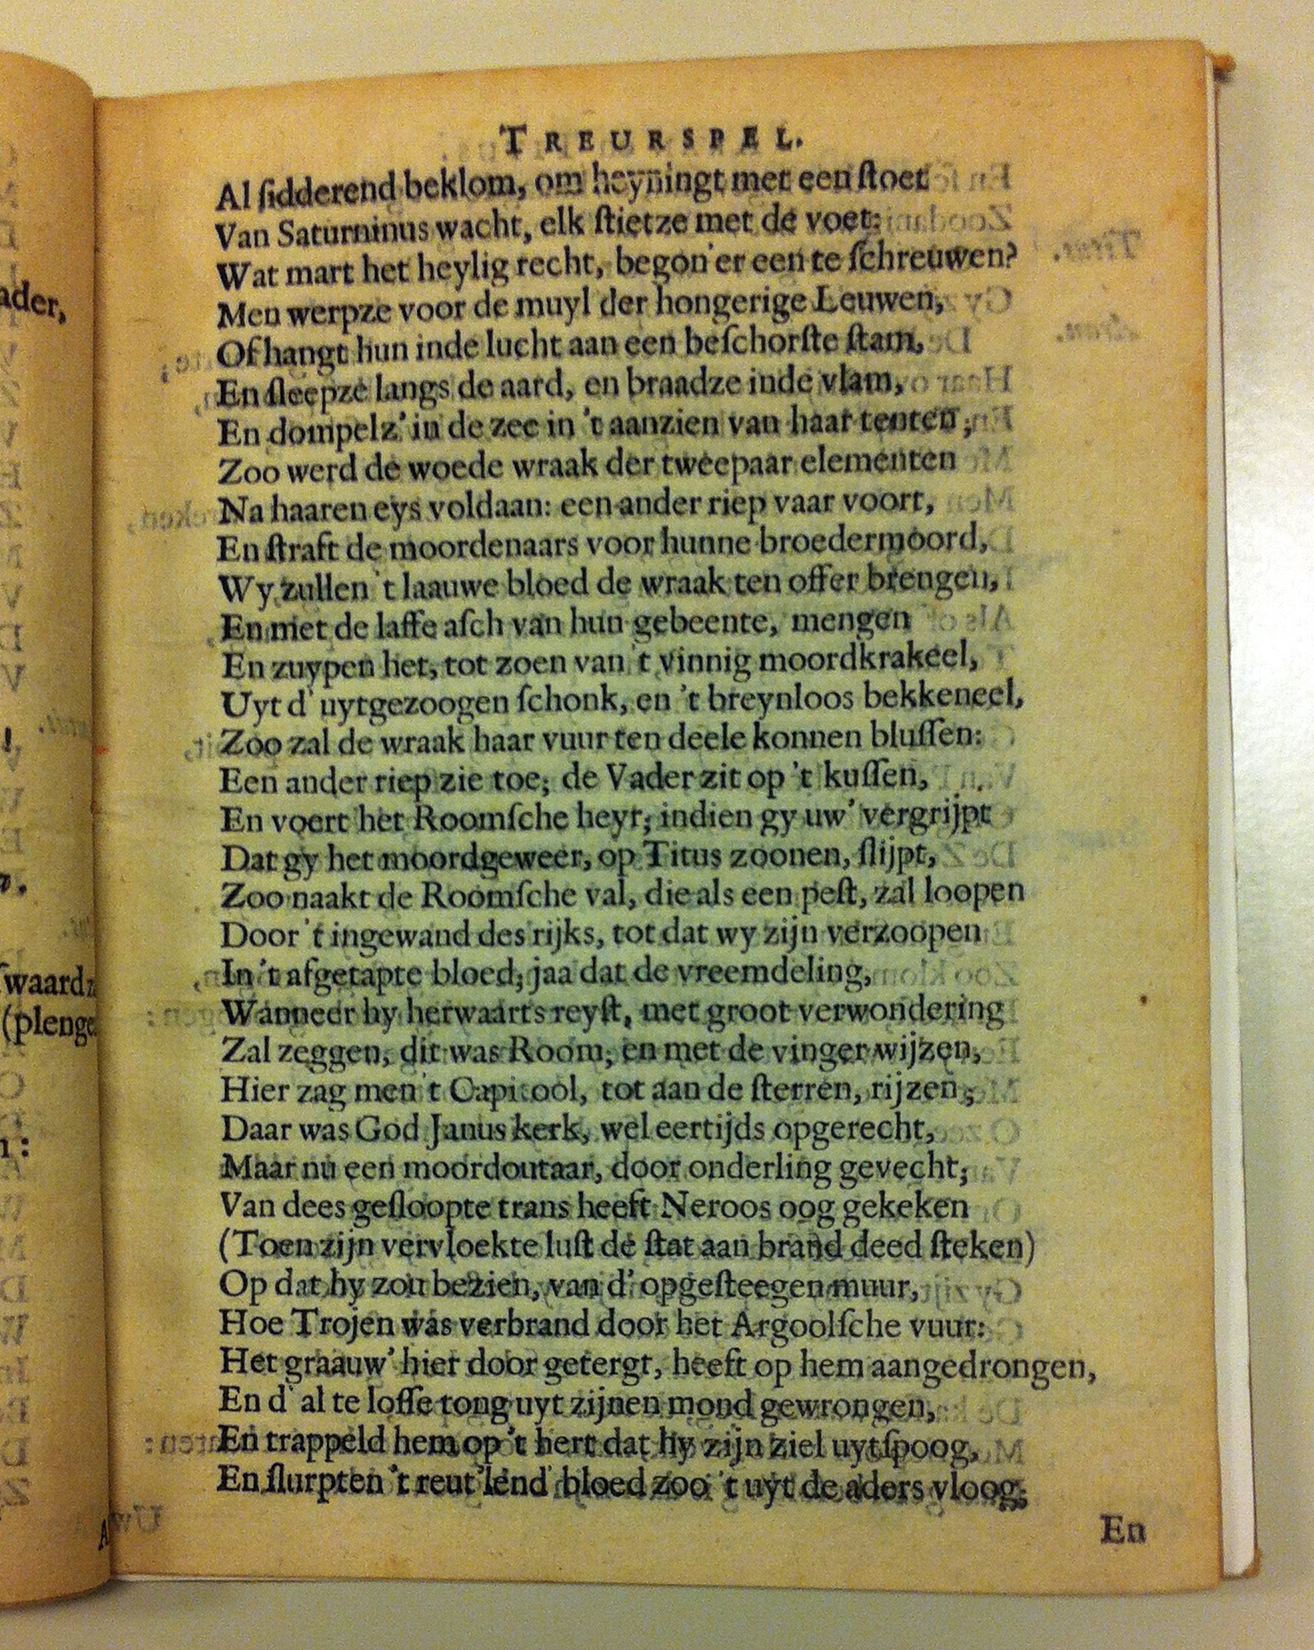 TREURSPEL.
Al ſidderend beklom, om heyningt met een ſtoet
Van Saturninus wacht, elk ſtietze met de voet:
Wat mart het heylig recht, begon'er een te ſchreuwen?
Men werpze voor de muyl der hongerige Leuwen,
Of hangt hun inde lucht aan een beſchorſte ſtam,
En ſleepze langs de aard, en braadze inde vlam,
En dompelz' in de zee in 't aanzien van haar tenten;
Zoo werd de woede wraak der tweepaar elementen
Na haaren eys voldaan: een ander riep vaar voort,
En ſtraft de moordenaars voor hunne broedermoord,
Wy zullen 't laauwe bloed de wraak ten offer brengen,
En met de laffe aſch van hun gebeente, mengen
En zuypen het, tot zoen van 't vinnig moordkrakeel,
Uyt d' uytgezoogen ſchonk, en 't breynloos bekkeneel,
Zoo zal de wraak haar vuur ten deele konnen bluſſen:
Een ander riep zie toe; de Vader zit op 't kuſſen,
En voert het Roomſche heyr; indien gy uw' vergrijpt
Dat gy het moordgeweer, op Titus zoonen, ſlijpt,
Zoo naakt de Roomſche val, die als een peſt, zal loopen
Door 't ingewand des rijks, tot dat wy zijn verzoopen
In 't afgetapte bloed; jaa dat de vreemdeling,
Wanneer hy herwaarts reyſt, met groot verwondering
Zal zeggen, dit was Room, en met de vinger wijzen,
Hier zag men 't Capitool, tot aan de ſterren, rijzen;
Daar was God Janus kerk, wel eertijds opgerecht,
Maar nu een moordoutaar, door onderling gevecht;
Van dees geſloopte trans heeft Neroos oog gekeken
(Toen zijn vervloekte luſt de ſtat aan brand deed ſteken)
Op dat hy zou bezien, van d' opgeſteegen muur,
Hoe Trojen was verbrand door het Argoolſche vuur:
Het graauw' hier door getergt, heeft op hem aangedrongen,
En d' al te loſſe tong uyt zijnen mond gewrongen,
En trappeld hem op 't hert dat hy zijn ziel uytſpoog,
En ſlurpten 't reut'lend bloed zoo 't uyt de aders vloog;
En